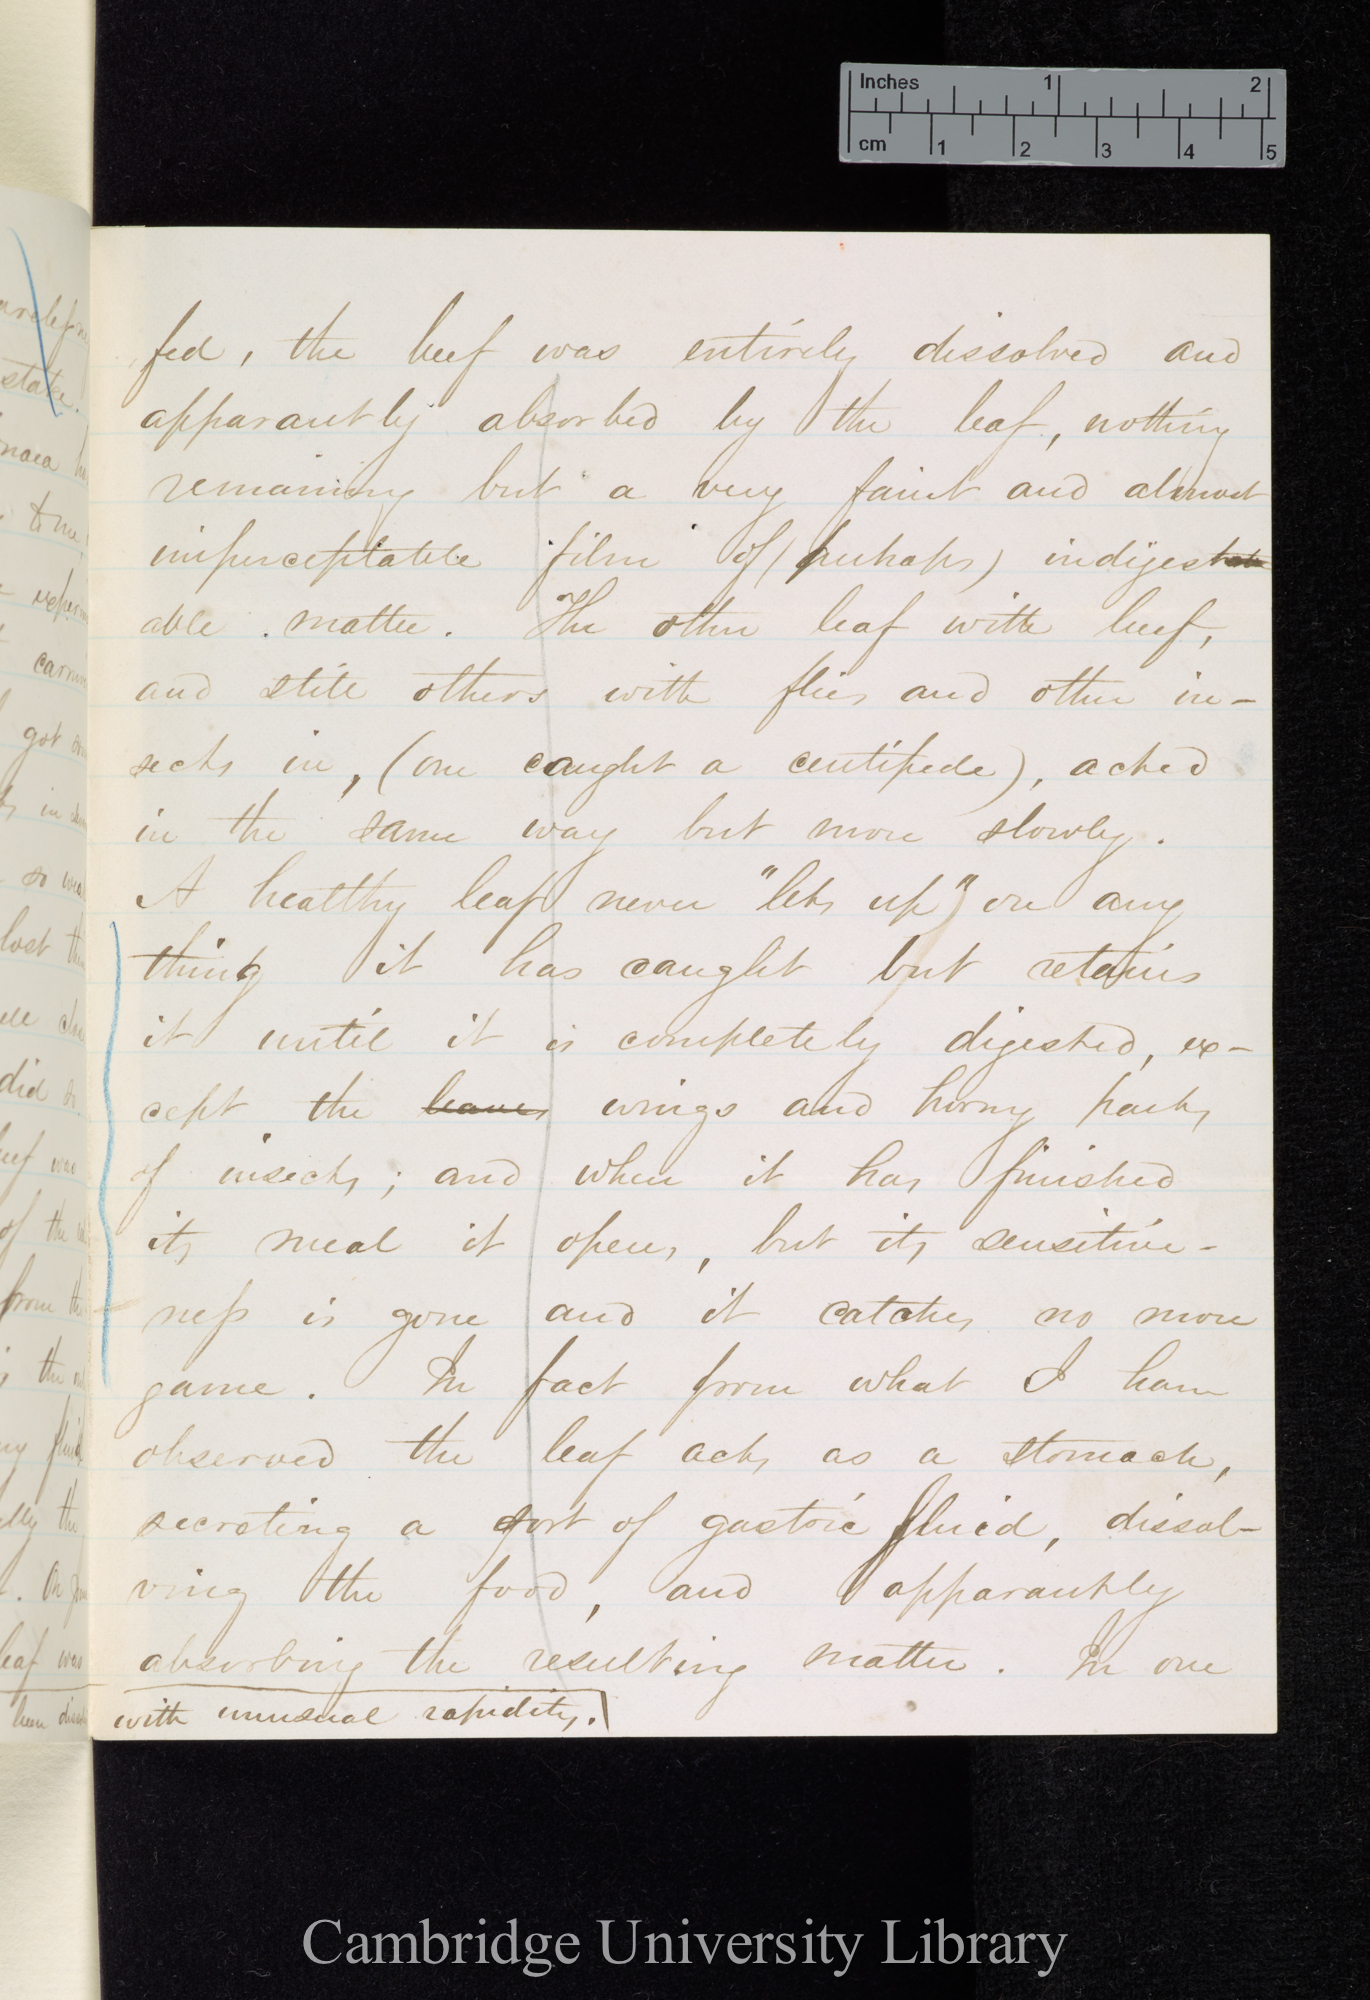 Inches 1 2
cm 1 2 3 4 5
fed, the beef was entirely dissolved and
apparantly absorbed by the leaf, nothing
remaining but a very faint and almost
imperceptable film of (perhaps) indigest
able matter. The other leaf with beef,
and still others with flies and other in-
sects in, (one caught a centipede), acted
in the same way but more slowly.
A healthy leaf never "lets up" on any
thing it has caught but retains
it until it is completely digested, ex-
cept the leaves wings and horny parts
of insects; and when it has finished
its meal it opens, but its sensitive-
ness is gone and it catches no more
game. In fact from what I have
observed the leaf acts as a stomach,
secreting a sort of gastric fluid, dissol-
ving the food, and apparantly
absorbing the resulting matter. In one
with unusual rapidity.
state.
naea
to me,
got
in
so
lost
did so
beef was
of the
from the
the
fluid
the
leaf was
been
Cambridge University Library